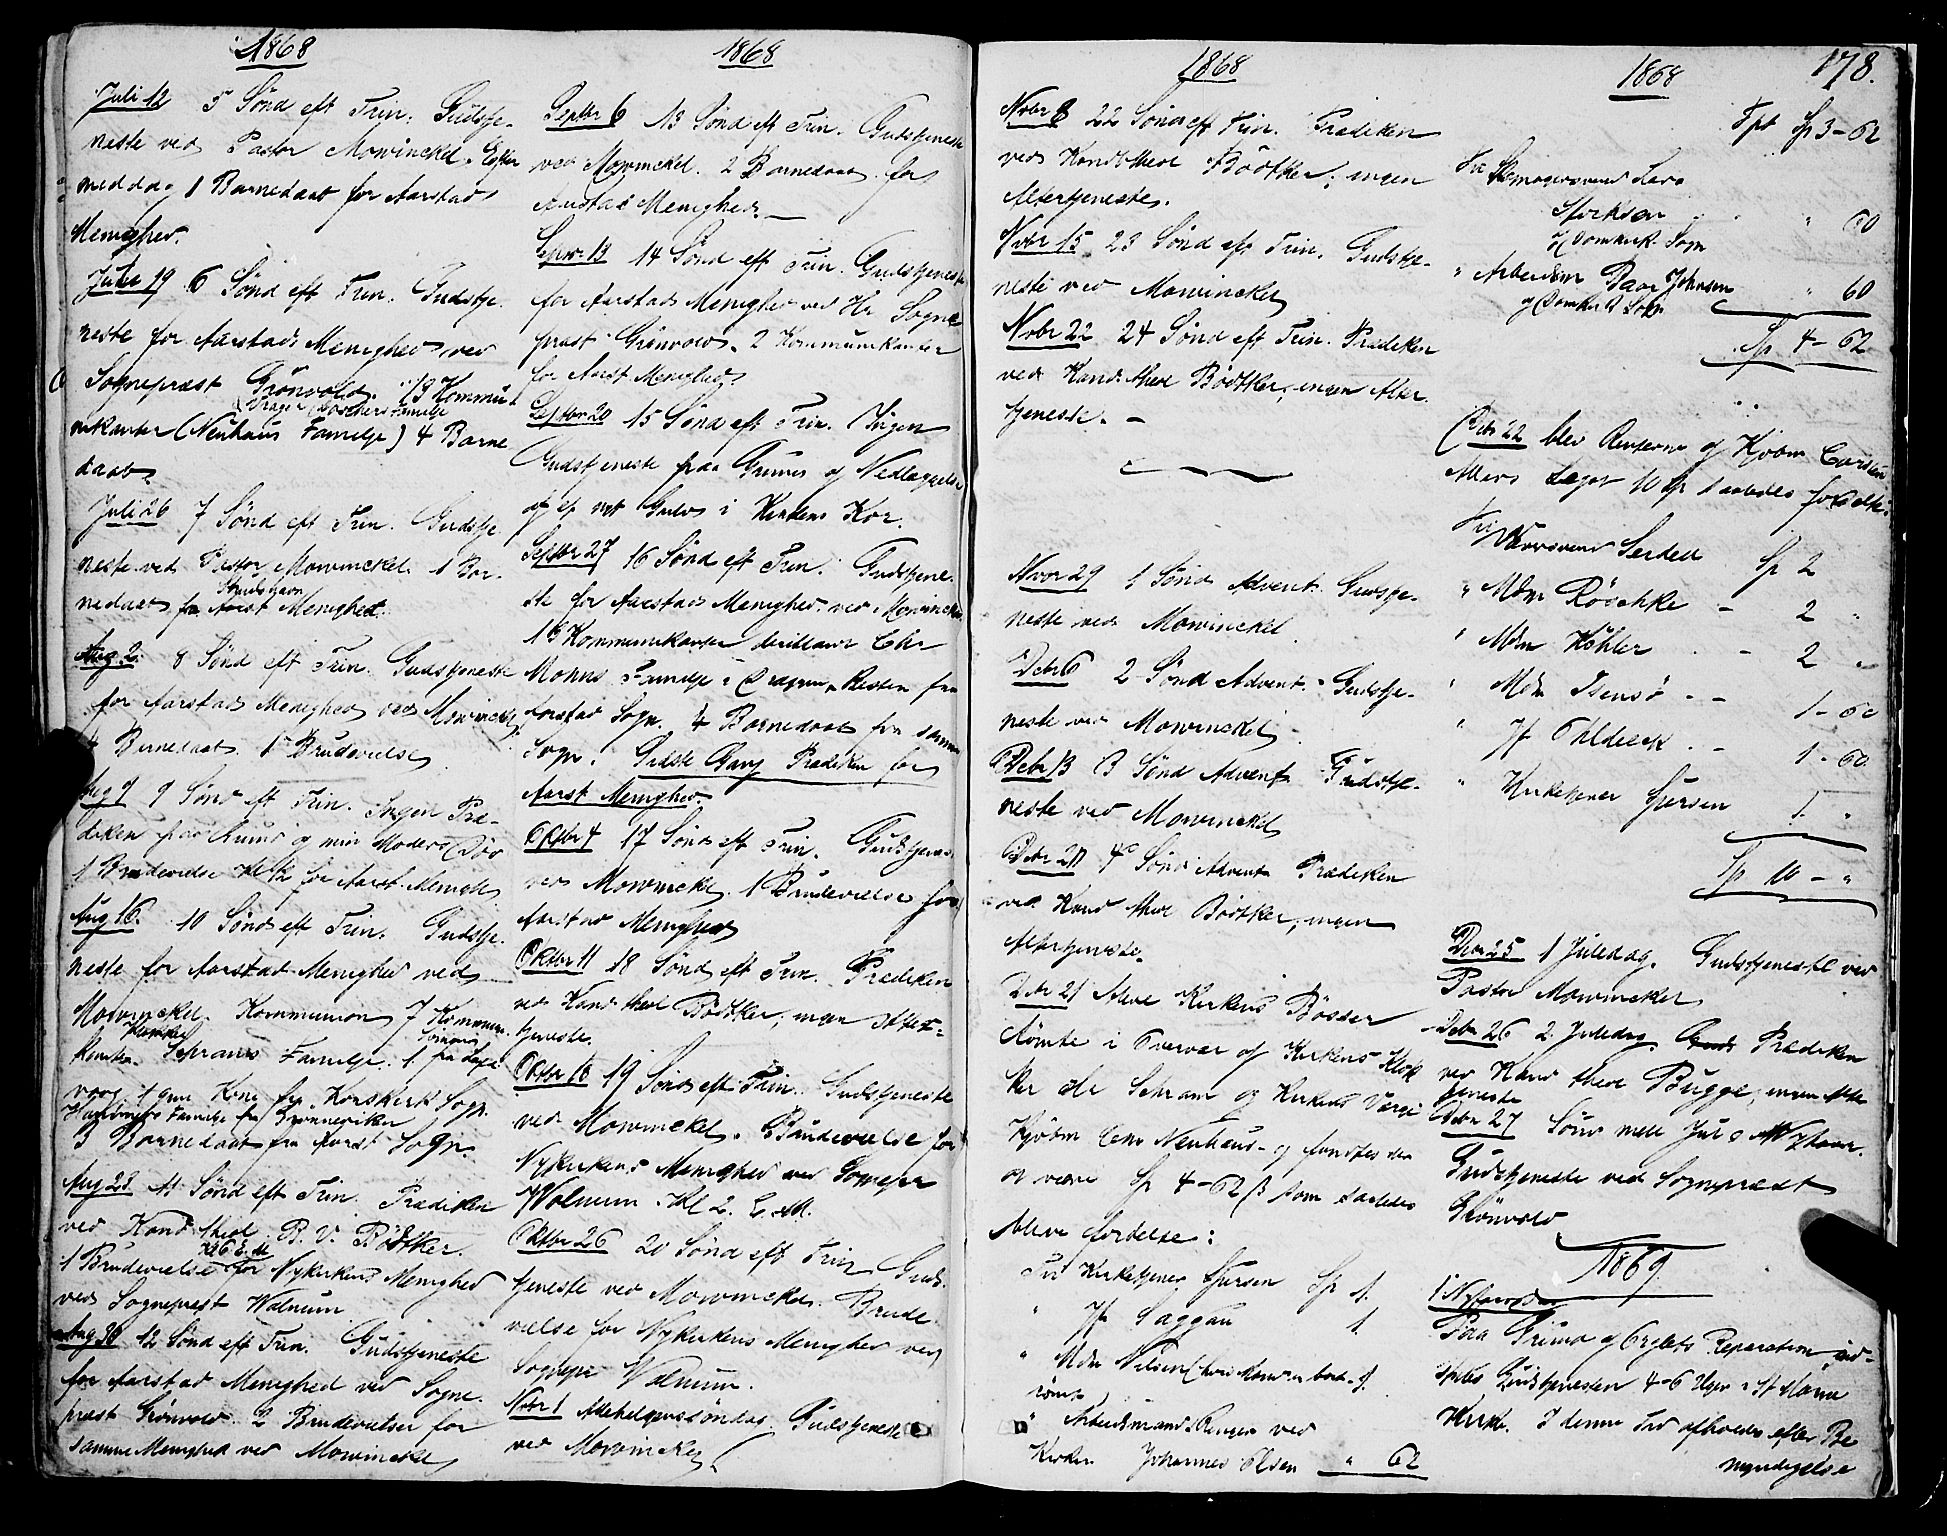 1868
Juli 12 5 Sönd eft Trin. Gudstje-
neste ved Pastor Mowinckel. Efter
middag 1 Barnedaab for Aarstads
Menighed.
Julie 19 6 Sönd eft Trin. Gudstje-
neste for Aarstads Menighed ved
Sognepræst Grönvold. 13 Kommu-
nikanter (Neuhaus Familje) 4 Barne
daab
Juli 26 7 Sönd eft Trin. Gudstje
neste ved Pastor Mowinckel 1 Bar-
nedaab for Aarst Menighed.
Aug 2. 8 Sönd eft Trin. Gudstjeneste
for Aarstads Menighed ved Mowinckel
4 Barnedaab. 1 Brudevielse
Aug 9 9 Sönd eft Trin. Ingen Præ-
diken paa Grund og min Moders Död
1 Brudevielse Kl 12 for Aarst. Menigh
Aug 16. 10 Sönd eft Trin. Gudstje-
neste for Aarstad Menighed ved
Mowinckel. Kommunion 7 Kommun-
Familje. 1 fra
1 gm Kone fra Korskirk Sogn.
Familje fra
3 Barnedaab fra Aarst Sogn.
Aug 23. 11 Sönd eft Trin. Prædiken
ved Kand theol B. V. Bödtker.
Kl 6 E. M.
1 Brudevielse for Nykirkens Menighed
ved Sognepræst Walnum
Aug 30 12 Sönd eft Trin. Gudstjeneste
for Aarstad Menighed ved Sogne-
præst Grönvold. 2 Brudevielser for
samme Menighed ved Mowinckel
1868
Septbr 6 13 Sönd eft Trin. Gudstjeneste
ved Mowinckel. 2 Barnedaab for
Aarstad Menighed.
Septbr 13 14 Sönd eft Trin. Gudstjeneste
for Aarstads Menighed ved Hr Sogne
præst Grönvold. 2 Kommunikanter
for Aarst Menighed
Septbr 20 15 Sönd eft Trin. Ingen
Gudstjeneste paa Grund og Nedlæggelse
af et nyt Gulv i Kirkens Kor.
Septbr 27 16 Sönd eft Trin. Gudstjene-
ste for Aarstads Menighed ved Mowinckel
13 Kommunikanter deriblandt Chr
Mohns Familje i Resten fra
Aarstad Sogn. 4 Barnedaab fra samme
Sogn. Sidste Gang Prædiken for
Aarst Menighed.
Oktbr 4 17 Sönd eft Trin. Gudstjeneste
ved Mowinckel. 1 Brudevielse for
Aarstad Menighed
Oktbr 11 18 Sönd eft Trin. Prædiken
ved Kand theol Bödtker, ingen Alter-
tjeneste.
Oktbr 18 19 Sönd eft Trin. Gudstjeneste
ved Mowinckel. Brudevielse for
Nykirkens Menighed ved Sognepr
Walnum. Kl 2. E. M.
Oktbr 26 20 Sönd eft Trin Guds-
tjeneste ved Mowinckel. Brude
vielse for Nykirkens Menighed ved
Sognepr Walnum.
Nobr 1 Allehelgenssöndag. Gudstjeneste
ved Mowinckel
1868
Nobr 8 22 Sönd eft Trin. Prædiken
ved Kand theol Bödtker, ingen
Altertjeneste.
Nobr 15 23 Sönd eft Trin. Gudstje-
neste ved Mowinckel
Nobr 22 24 Sönd eft Trin. Prædiken
ved Kand theol Bödtker, ingen Alter
tjeneste. -
Novbr 29 1 Sönd Advent. Gudstje-
neste ved Mowinckel.
Debr 6 2 Sönd Advent. Gudstje-
neste ved Mowinckel.
Debr 13 3 Sönd Advent Gudstje-
neste ved Mowinckel
Debr 20 4 Sönd Advent Prædiken
ved Kand theol Bödtker, ingen
Altertjeneste.
Debr 21 bleve Kirkens Bösser
tömte i Overvær af Kirkens Klok
ker Schram og Kirkens Værge
Kjöbm Neuhaus og fandtes der
at være Sp 4-62 ß som saaledes
bleve fordelte:
Til Kirketjener Tjersen Sp 1.
" Jf Saggau 1.
" Mdm Nilsen 1.
" Arbeidsmand Ringer ved
Kirken Johannes Olsen " 62
1868 178.
Tpt Sp 3-62
Til Skomagersvend Lars
60
af Domkirk. Sogn
" Arbeidsm Paul Johnsen " 60
af Domkirk Sogn
Sp 4-62
Debr 22 blev Renterne af Kjöbm Carsten
Meers Legat 10 Sp saaledes fordelte:
Til Sp 2
" Mdm Röschke - 2 "
" Mdm Köhler - 2 "
" Mdm Isensö - 1-60
" Jf Ohldieck - 1-60
" Kirketjener Tjersen 1. "
Sp 10 - "
Debr 25 1 Juledag. Gudstjeneste ved
Pastor Mowinckel
Debr 26 2. Juledag. Guds Prædiken
ved Kand theol Bugge, ingen Alter
tjeneste
Debr 27 Sönd mell Jul o Nytaar.
Gudstjeneste ved Sognepræst
Grönvold
1869.
1 Nytaarsdag
Paa Grund af Orglets Reparation ind-
Gudstjenesten 4-6 Uger i St Mariæ
Kirke. I denne Tid afholdes efter Be
myndigelse